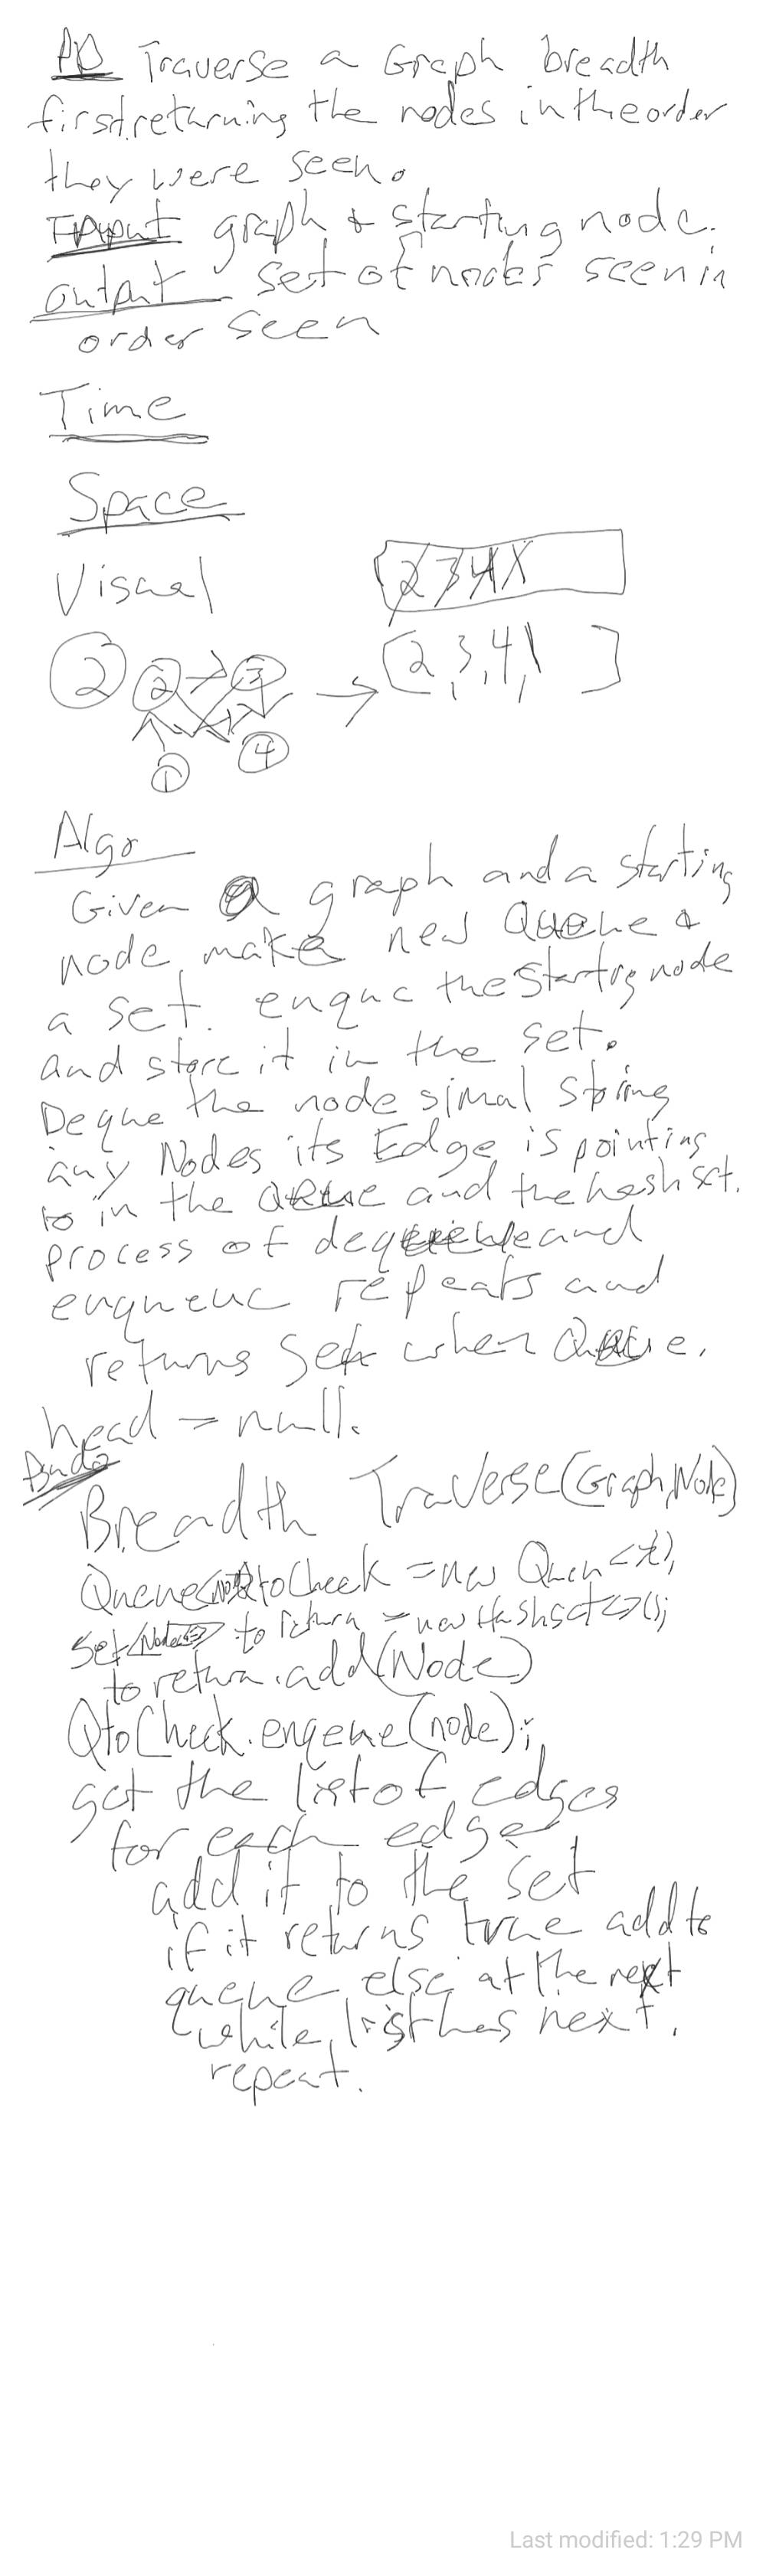 PD Traverse a Graph breadth
first, returning the nodes in the order
they were seen.
Input graph & starting node.
output set of nodes seen in
order seen
Time
Space
Visual
2 3 4 1
[2,3,4,1 ]
2 2 3
1 4
Algo
Given a graph and a starting
node, make new Queue &
a set. enque the starting node
and store it in the set.
Deque the node
any Nodes its Edge is pointing
to in the Queue and the hash set.
process of dequeue and
enqueue repeats and
returns Set when Queue.
head = null.
Breadth Traverse(Graph, Node)
Queue toCheck = new Queu<>();
Set<Node> to return = new Hashset<>();
to return.add(Node)
QtoCheck.enqeue(node);
get the list of edges
for each edge
add it to the set
if it returns true add to
queue, else at the next
while list has next.
repeat.
Last modified: 1:29 PM